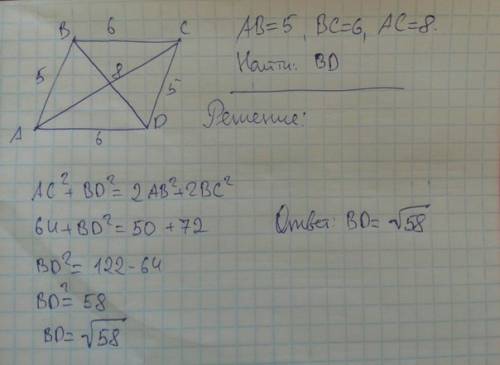 B 6 C
5 8 5
A 6 D
AB=5, BC=6, AC=8.
Найти: BD
Решение:
AC²+BD²=2AB²+2BC²
64+BD²=50+72
BD²=122-64
BD²=58
BD=√58
Ответ: BD=√58